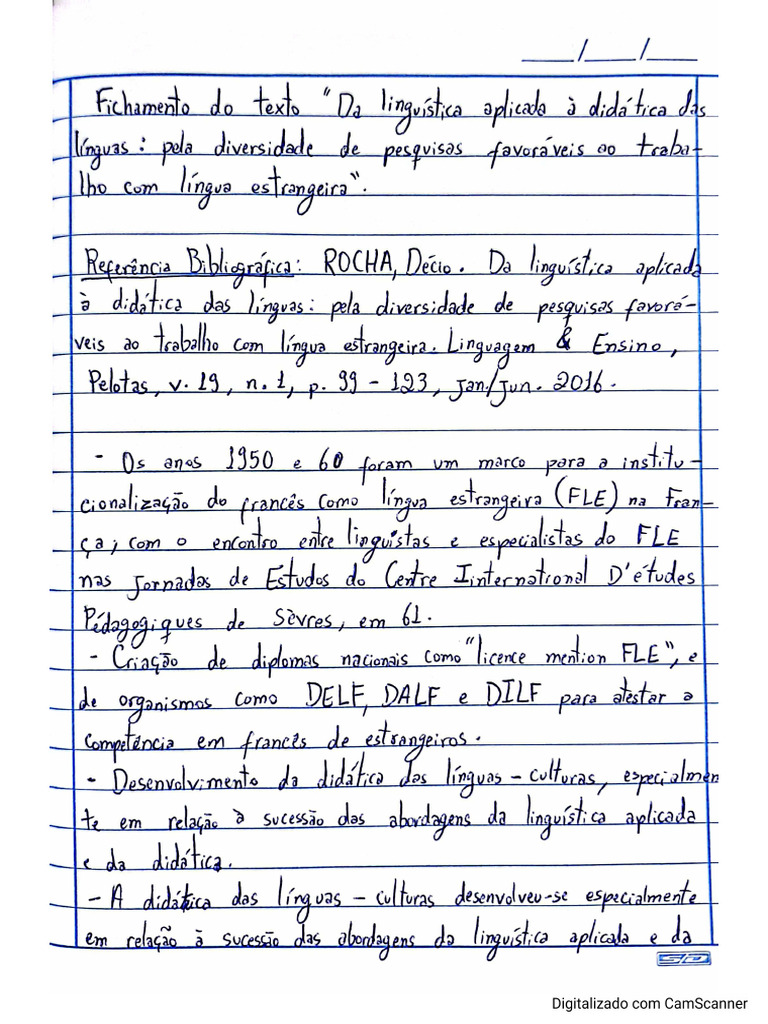 ___/___/___
Fichamento do texto "Da linguística aplicada à didática das
línguas: pela diversidade de pesquisas favoráveis ao traba-
lho com língua estrangeira".
Referência Bibliográfica: ROCHA, Décio. Da linguística aplicada
à didática das línguas: pela diversidade de pesquisas favorá-
veis ao trabalho com língua estrangeira. Linguagem & Ensino,
Pelotas, v. 19, n. 1, p. 99 - 123, Jan./Jun. 2016.
- Os anos 1950 e 60 foram um marco para a institu-
cionalização do francês como língua estrangeira (FLE) na Fran-
ça, com o encontro entre linguistas e especialistas do FLE
nas Jornadas de Estudos do Centre Iinternational D'études
Pédagogiques de Sèvres, em 61.
- Criação de diplomas nacionais como "licence mention FLE", e
de organismos como DELF, DALF e DILF para atestar a
competência em francês de estrangeiros.
- Desenvolvimento da didática das línguas - culturas, especialmen
te em relação à sucessão das abordagens da linguística aplicada
e da didática.
- A didática das línguas - culturas desenvolveu-se especialmente
em relação à sucessão das abordagens da linguística aplicada e da
SD
Digitalizado com CamScanner